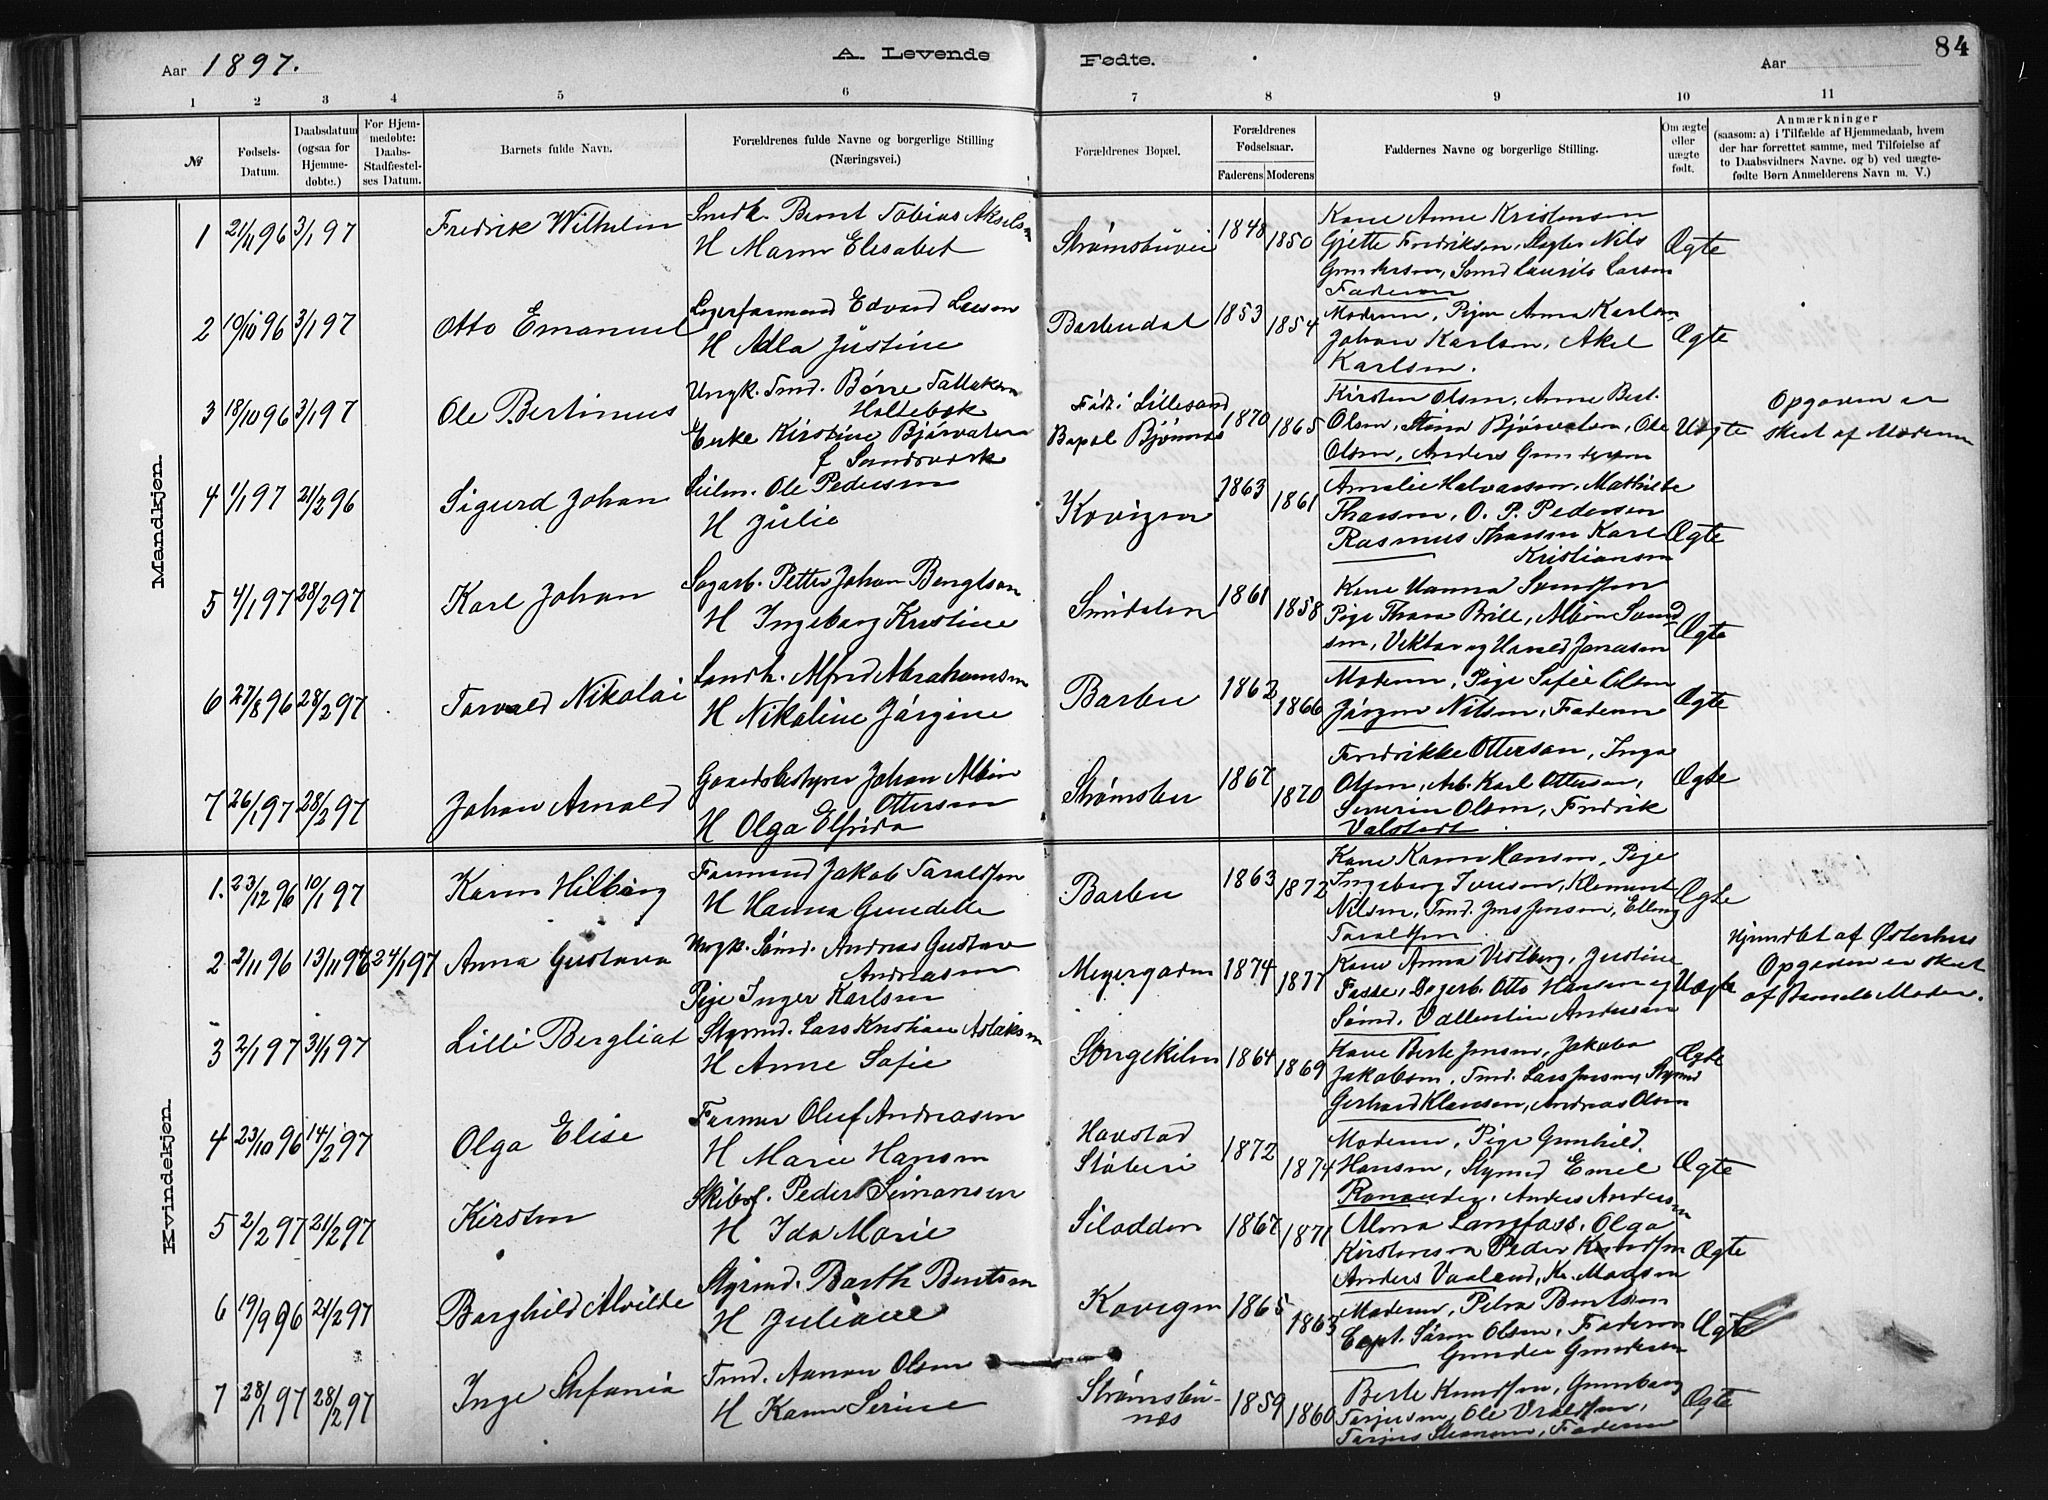 Aar 1897.
A. Levende Fødte.
Aar
84
1 2 3 4 5 6 7 8 9 10 11
№
Fødsels-Datum.
Daabsdatum (ogsaa for Hjemme-døbte.)
For Hjem-medøbte: Daabs-Stadfæstel-ses Datum.
Barnets fulde Navn.
Forældrenes fulde Navne og borgerlige Stilling (Næringsvei.)
Forældrenes Bopæl.
Forældrenes Fødselsaar.
Faderens Moderens
Faddernes Navne og borgerlige Stilling.
Om ægte eller uægte født.
Anmærkninger
(saasom: a) i Tilfælde af Hjemmedaab, hvem der har forrettet samme, med Tilføielse af to Daabsvidners Navne. og b) ved uægte-fødte Børn Anmelderens Navn m. V.)
Mandkjøn.
1 21/11 96 3/1 97 Fredrik Wilhelm
Snedk. Bernt Tobias Akselsen
H Maren Elisabet
Strømsbuvei 1848 1850
Kone Anne Kristensen
Gjette Fredriksen, Slagter Nils
Gundersen, Sømd Laurits Larsen
Faderen
Ægte
2 19/10 96 3/1 97 Otto Emanuel
Lagerformand Edvard Larson
H Adla Justine
Barbudal 1853 1854
Moderen, Pigen Anna Karlsen,
Johan Karlsen, Aksel
Karlsen.
Ægte
3 18/10 96 3/1 97 Ole Bertinius
Ungk. Tmd. Børre Tallaksen
Holtebæk
Enke Kirstine Bjorvaten
f Sandsværk
Født i Lillesand
Bopæl Bjønnes 1870 1865
Kirsten Olsen, Anne Bert.
Olsen, Stina Bjørvaten, Ole
Olsen, Anders Gundersen
Uægte
Opgaven er
skeet af Moderen
4 1/1 97 21/2 96 Sigurd Johan
Seilm. Ole Pedersen
H Julie
Kovigen 1863 1861
Amalie Halvorsen, Mathilde
Thorsen, O. P. Pedersen
Rasmus Thorsen Karl
Kristiansen
Ægte
5 4/1 97 28/2 97 Karl Johan
Sagarb. Petter Johan Bengtson
H Ingeborg Kristine
Smidalen 1861 1858
Kone Hanna
Pige Thora Brill, Albin
sen, Viktor og Harald Jonassen
Ægte
6 27/8 96 28/2 97 Torvald Nikolai
Landh. Alfred Abrahamsen
H Nikoline Jørgine
Barbu 1862 1866
Moderen, Pige Sofie Olsen
Jørgen Nilsen, Faderen
Ægte
7 26/1 97 28/2 97 Johan Arnold
Gaardsbestyrer Johan Albin
Ottersen
H Olga Elfrida
Strømsbu 1867 1870
Fredrikke Ottersen, Inga
Olsen, Arb. Karl Ottersen,
Severin Olsen, Fredrik
Valstedt
Ægte
Kvindekjøn.
1. 23/12 96 10/1 97 Karen Hilborg
Formand Jakob Taraldsen
H Hanna Gundelle
Barbu 1863 1872
Kone Karen Hansen, Pige
Ingeborg Iversen, Klement
Nilsen, Tmd. Jens Jensen, Elling
Taraldsen
Ægte
2. 2/11 96 13/11 96 24/1 97 Anna Gustava
Ungk. Sømd. Andreas Gustav
Andreasen
Pige Inger Karlsen
Meyergaden 1874 1877
Kone Anna Vedberg, Justine
Fasse, Dagarb. Otto Hansen og
Sømd. Vallentin Andersen
Uægte
Hjemdøbt af Østerhus
Opgaven er skeet
af Barnets Moder.
3 2/1 97 31/1 97 Lilli Bergliat
Styrmd. Lars Kristian Aslaksen
H Anne Sofie
Songekilen 1864 1869
Kone Berte Jensen, Jakoba
Jakobsen, Tmd. Lars Jensen, Styrmd
Gerhard Klausen, Andreas Olsen
Ægte
4 23/10 96 14/2 97 Olga Elise
Farmer Oluf Andreasen
H Marie Hansen
Havstad
Støberi 1872 1874
Moderen, Pige Gunhild
Hansen, Styrmd Emil
Anders Andersen
Ægte
5 2/2 97 21/2 97 Kirsten
Skibsf. Peder Simonsen
H Ida Marie
Silodden 1867 1871
Alma Langfass, Olga
Kirstensen Peder Knudsen
Anders Vaaland, Kr. Madsen
Ægte
6 19/9 96 21/2 97 Borghild Alvilde
Styrmd. Barth Berntsen
H Juliane
Kovigen 1865 1863
Moderen, Petra Berntsen
Capt. Søren Olsen, Faderen
Gunder Gundersen
Ægte
7 28/1 97 28/2 97 Inge Stefania
Tmd. Aanon Olsen
H Karen Serine
Strømsbu-
næs 1859 1860
Berte Knudsen, Gunborg
Terjesen, Ole
Faderen
Ægte